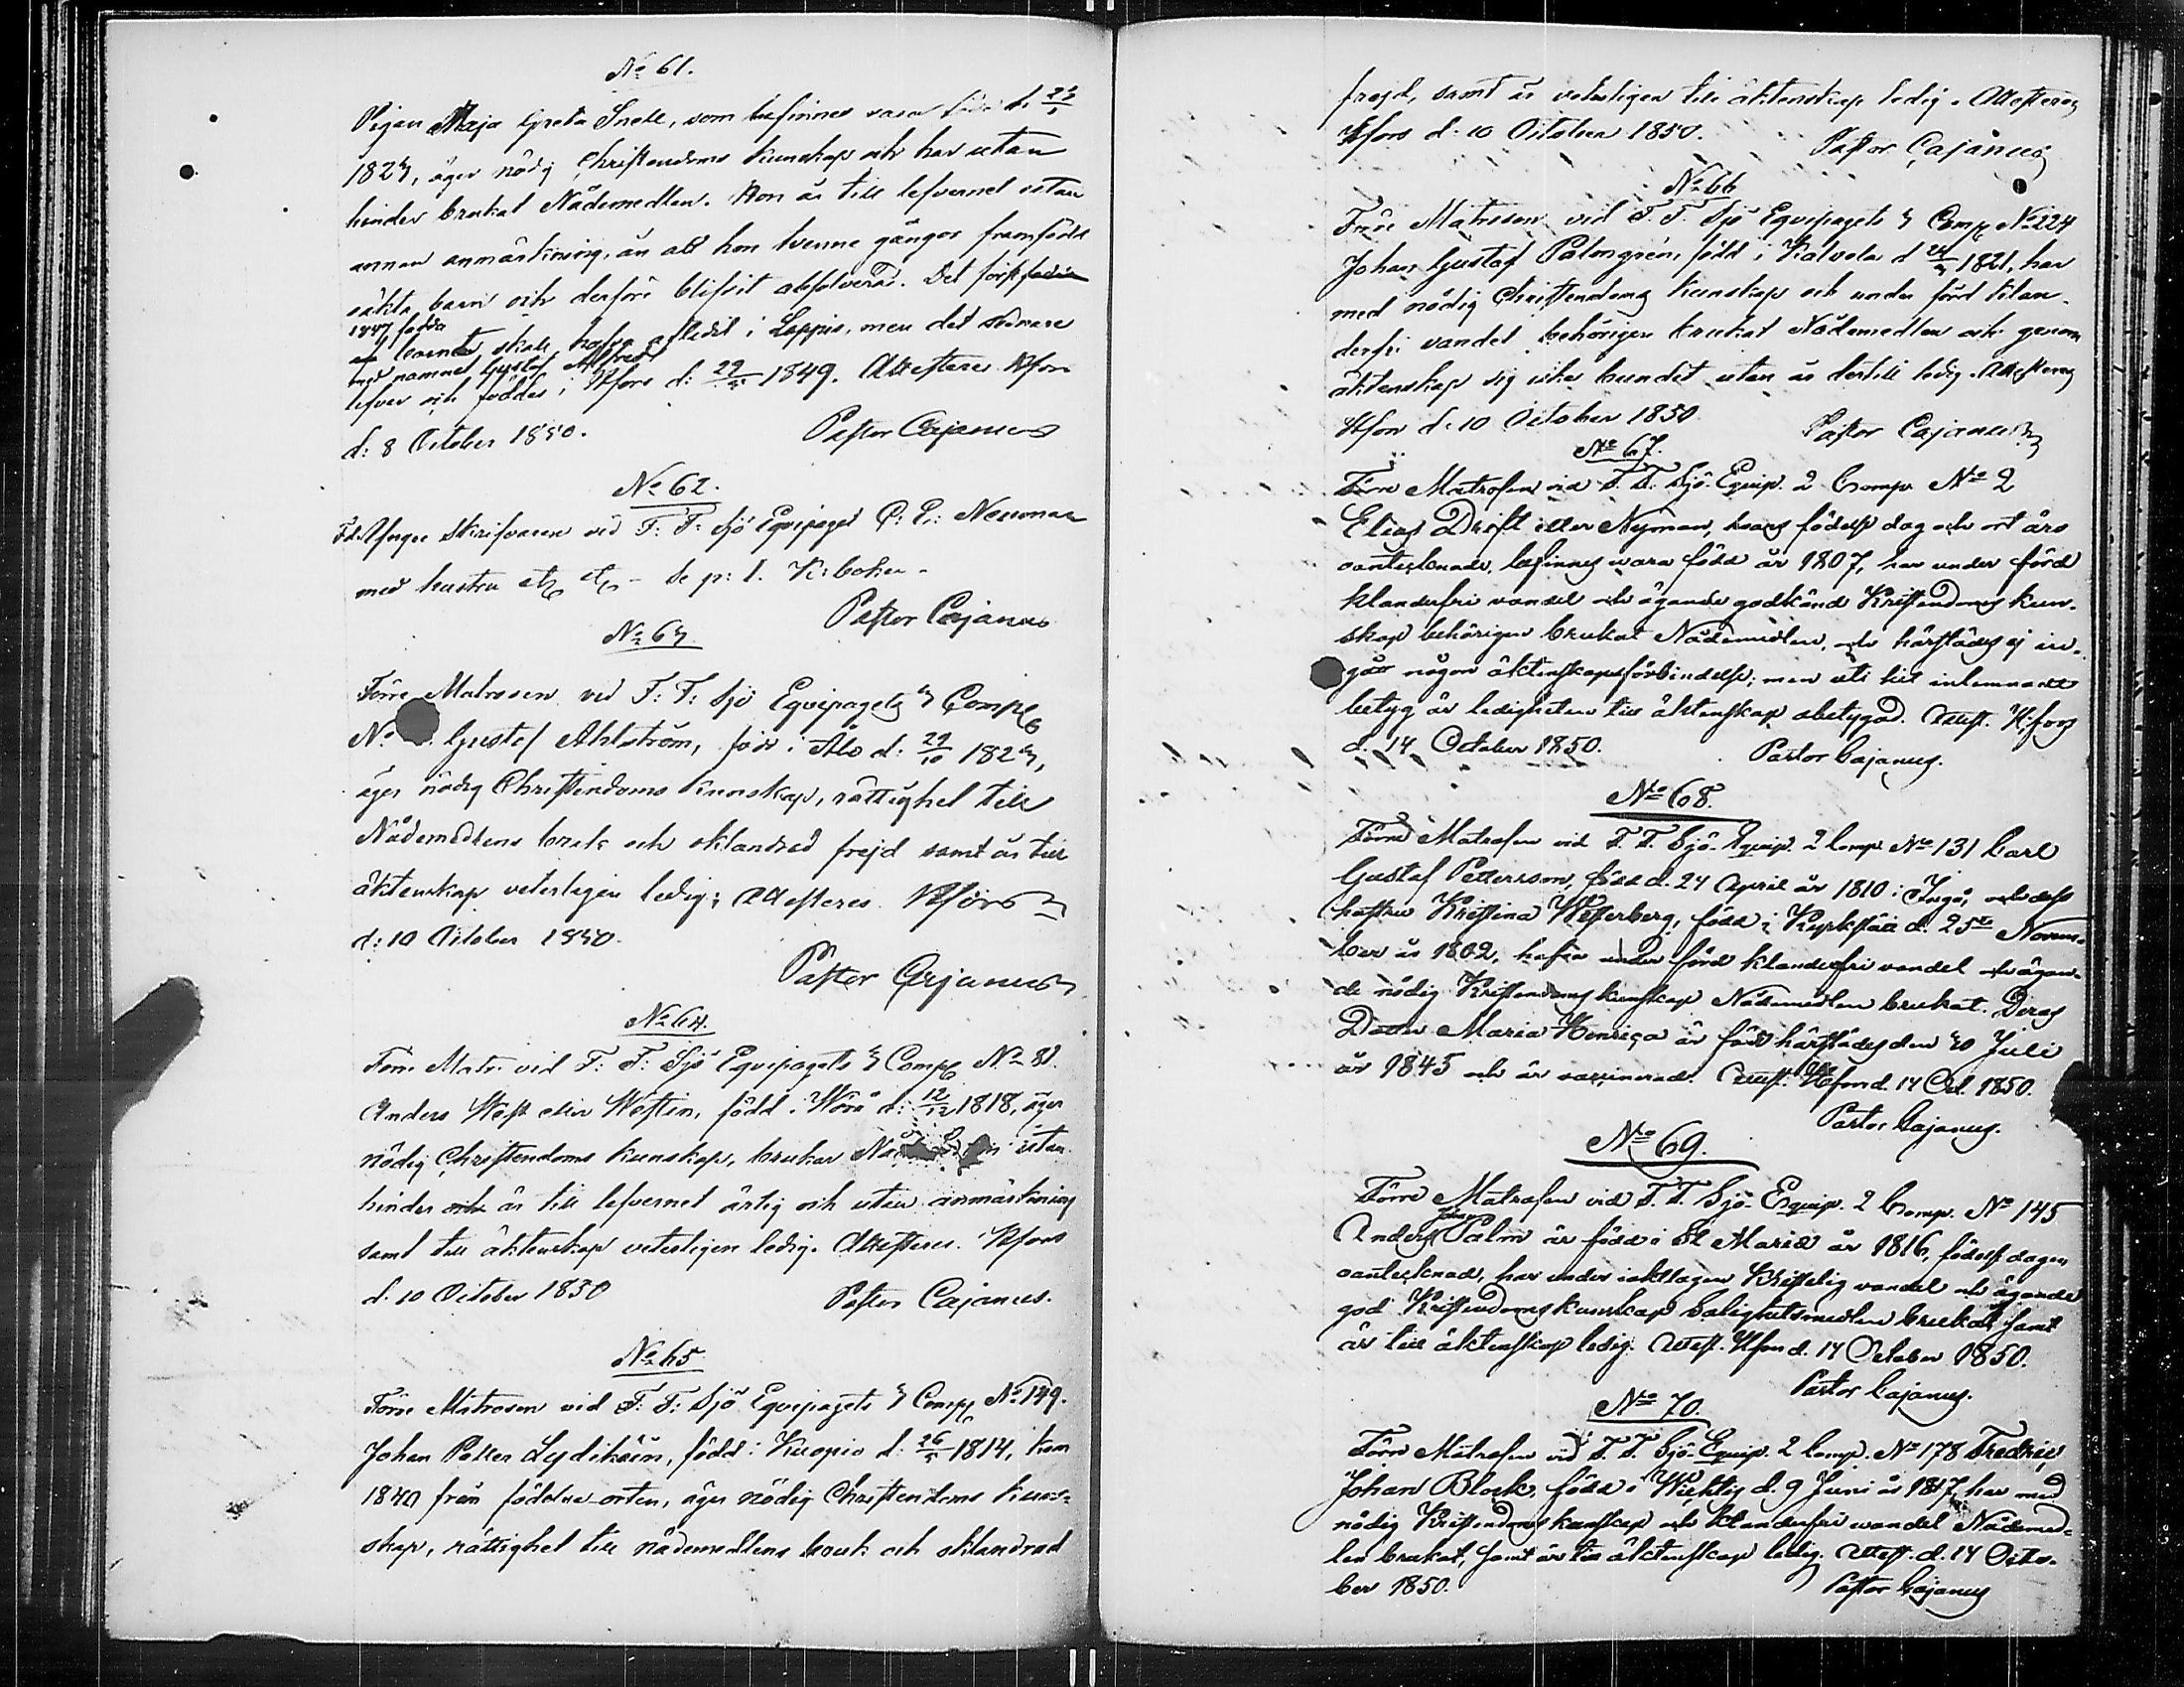 No 61.
Pigan Maja Greta Snell, som befinnes vara född d. 23/1
1823, äger nödig Christendoms kunskap och har utan
hinder brukat Nådemedlen. Hon är till lefvernet utan
annan anmärkning, än att hon tvenne gånger framfödt
oäkta barn och derföre blifvit absolverad. Det först
1847 födda
barnet skall hafva aflidit i Lappvis, men det sednare
med namnet Gustaf Alfred
lefver och föddes i Hfors d: 29/ 1849. Attesteres Hfors
d: 8 October 1850. Pastor Cajanus
No 62.
Skrifvaren vid F: F: Sjö Equipaget C: E: Neuman
med hustru etc etc – Se p: 1. K: boken –
Pastor Cajanus
No 63
Förre Matrosen vid F: F: Sjö Equipagets 3 Comp
No Gustaf Ahlström, född i Åbo d: 29/10 1823,
äger nödig Christendoms kunskap, rättighet till
Nådemedlens bruk och oklandrad frejd samt är till
äktenskap veterligen ledig; Attesteres Hfors
d: 10 October 1850.
Pastor Cajanus
No 64.
Förre Matr. vid F: F: Sjö Equipagets 3 Comp No 81.
Anders Wäst eller Westin, född i Wörå d: 12/12 1818, äger
nödig Christendoms kunskap, brukar utan
hinder och är till lefvernet ärlig och utan anmärkning
samt till äktenskap veterligen ledig. Attesteres. Hfors
d. 10 October 1850 Pastor Cajanus.
No 65
Förre Matrosen vid F: F: Sjö Equipagets 3 Comp No 149.
Johan Petter Lydikäin, född i Kuopio d: 26/5 1814, kom
1840 från födelse orten, äger nödig Christendoms kun-
skap, rättighet till nådemedlens bruk och oklandrad
frejd, samt är veterligen till äktenskap ledig. Attesteres
Hfors d. 10 October 1850. Pastor Cajanus
No 66
Förre Matrosen vid F. F. Sjö Equipagets 3 Comp No 224
Johan Gustaf Palmgrén, född i Kalvola d 24/3 1821, har
med nödig Christendoms kunskap och under förd klan-
derfri vandel behörigen brukat Nådemedlen och genom
äktenskap sig icke bundit utan är dertill ledig. Attesteres
Hfors d. 10 October 1850. Pastor Cajanus
No 67.
Förre Matrosen vid F. F. Sjö-Equip. 2 Comp. No 2
Elias Drift eller Nyman, hvars födelse dag och ort äro
oantecknade, befinnes vara född år 1807, har under förd
klanderfri vandel och ägande godkänd Kristendoms kun-
skap behörigen brukat Nådemedlen, och härstädes ej in-
gått någon äktenskapsförbindelse; men uti hit inlemnadt
betyg är ledigheten till äktenskap obetygad. Attest. H:fors
d. 14 October 1850. Pastor Cajanus.
No 68.
Förre Matrosen vid F. F. Sjö-Equip. 2 Comp No 131 Carl
Gustaf Pettersson, född d. 24 April år 1810 i Ingå, och dess
hustru Kristina Westerberg, född i Kyrkslätt d. 25te Novem-
ber år 1802, hafva under förd klanderfri vandel och ägan-
de nödig Kristendoms kunskap Nådemedlen brukat. Deras
Dotter Maria Henrica är född härstädes den 20 Juli
år 1845 och är vaccinerad. Attest. Hfors d. 14 Oct. 1850.
Pastor Cajanus.
No 69.
Förre Matrosen vid F. F. Sjö-Equip. 2 Comp. No 145
Johan
Anders Palm är född i St Marie år 1816, födelse dagen
oantecknad, har under iakttagen Kristelig vandel och ägande
god Kristendoms kunskap Salighetsmedlen brukat, samt
är till äktenskap ledig. Attest. Hfors d. 14 October 1850.
Pastor Cajanus.
No 70.
Förre Matrosen vid F. F. Sjö-Equip. 2 Comp. No 178 Fredric
Johan Block, född i Wichtis d. 9 Juni år 1817, har med
nödig Kristendoms kunskap och klanderfri vandel Nådemed-
len brukat, samt är till äktenskap ledig. Attest. d. 14 Octo-
ber 1850. Pastor Cajanus